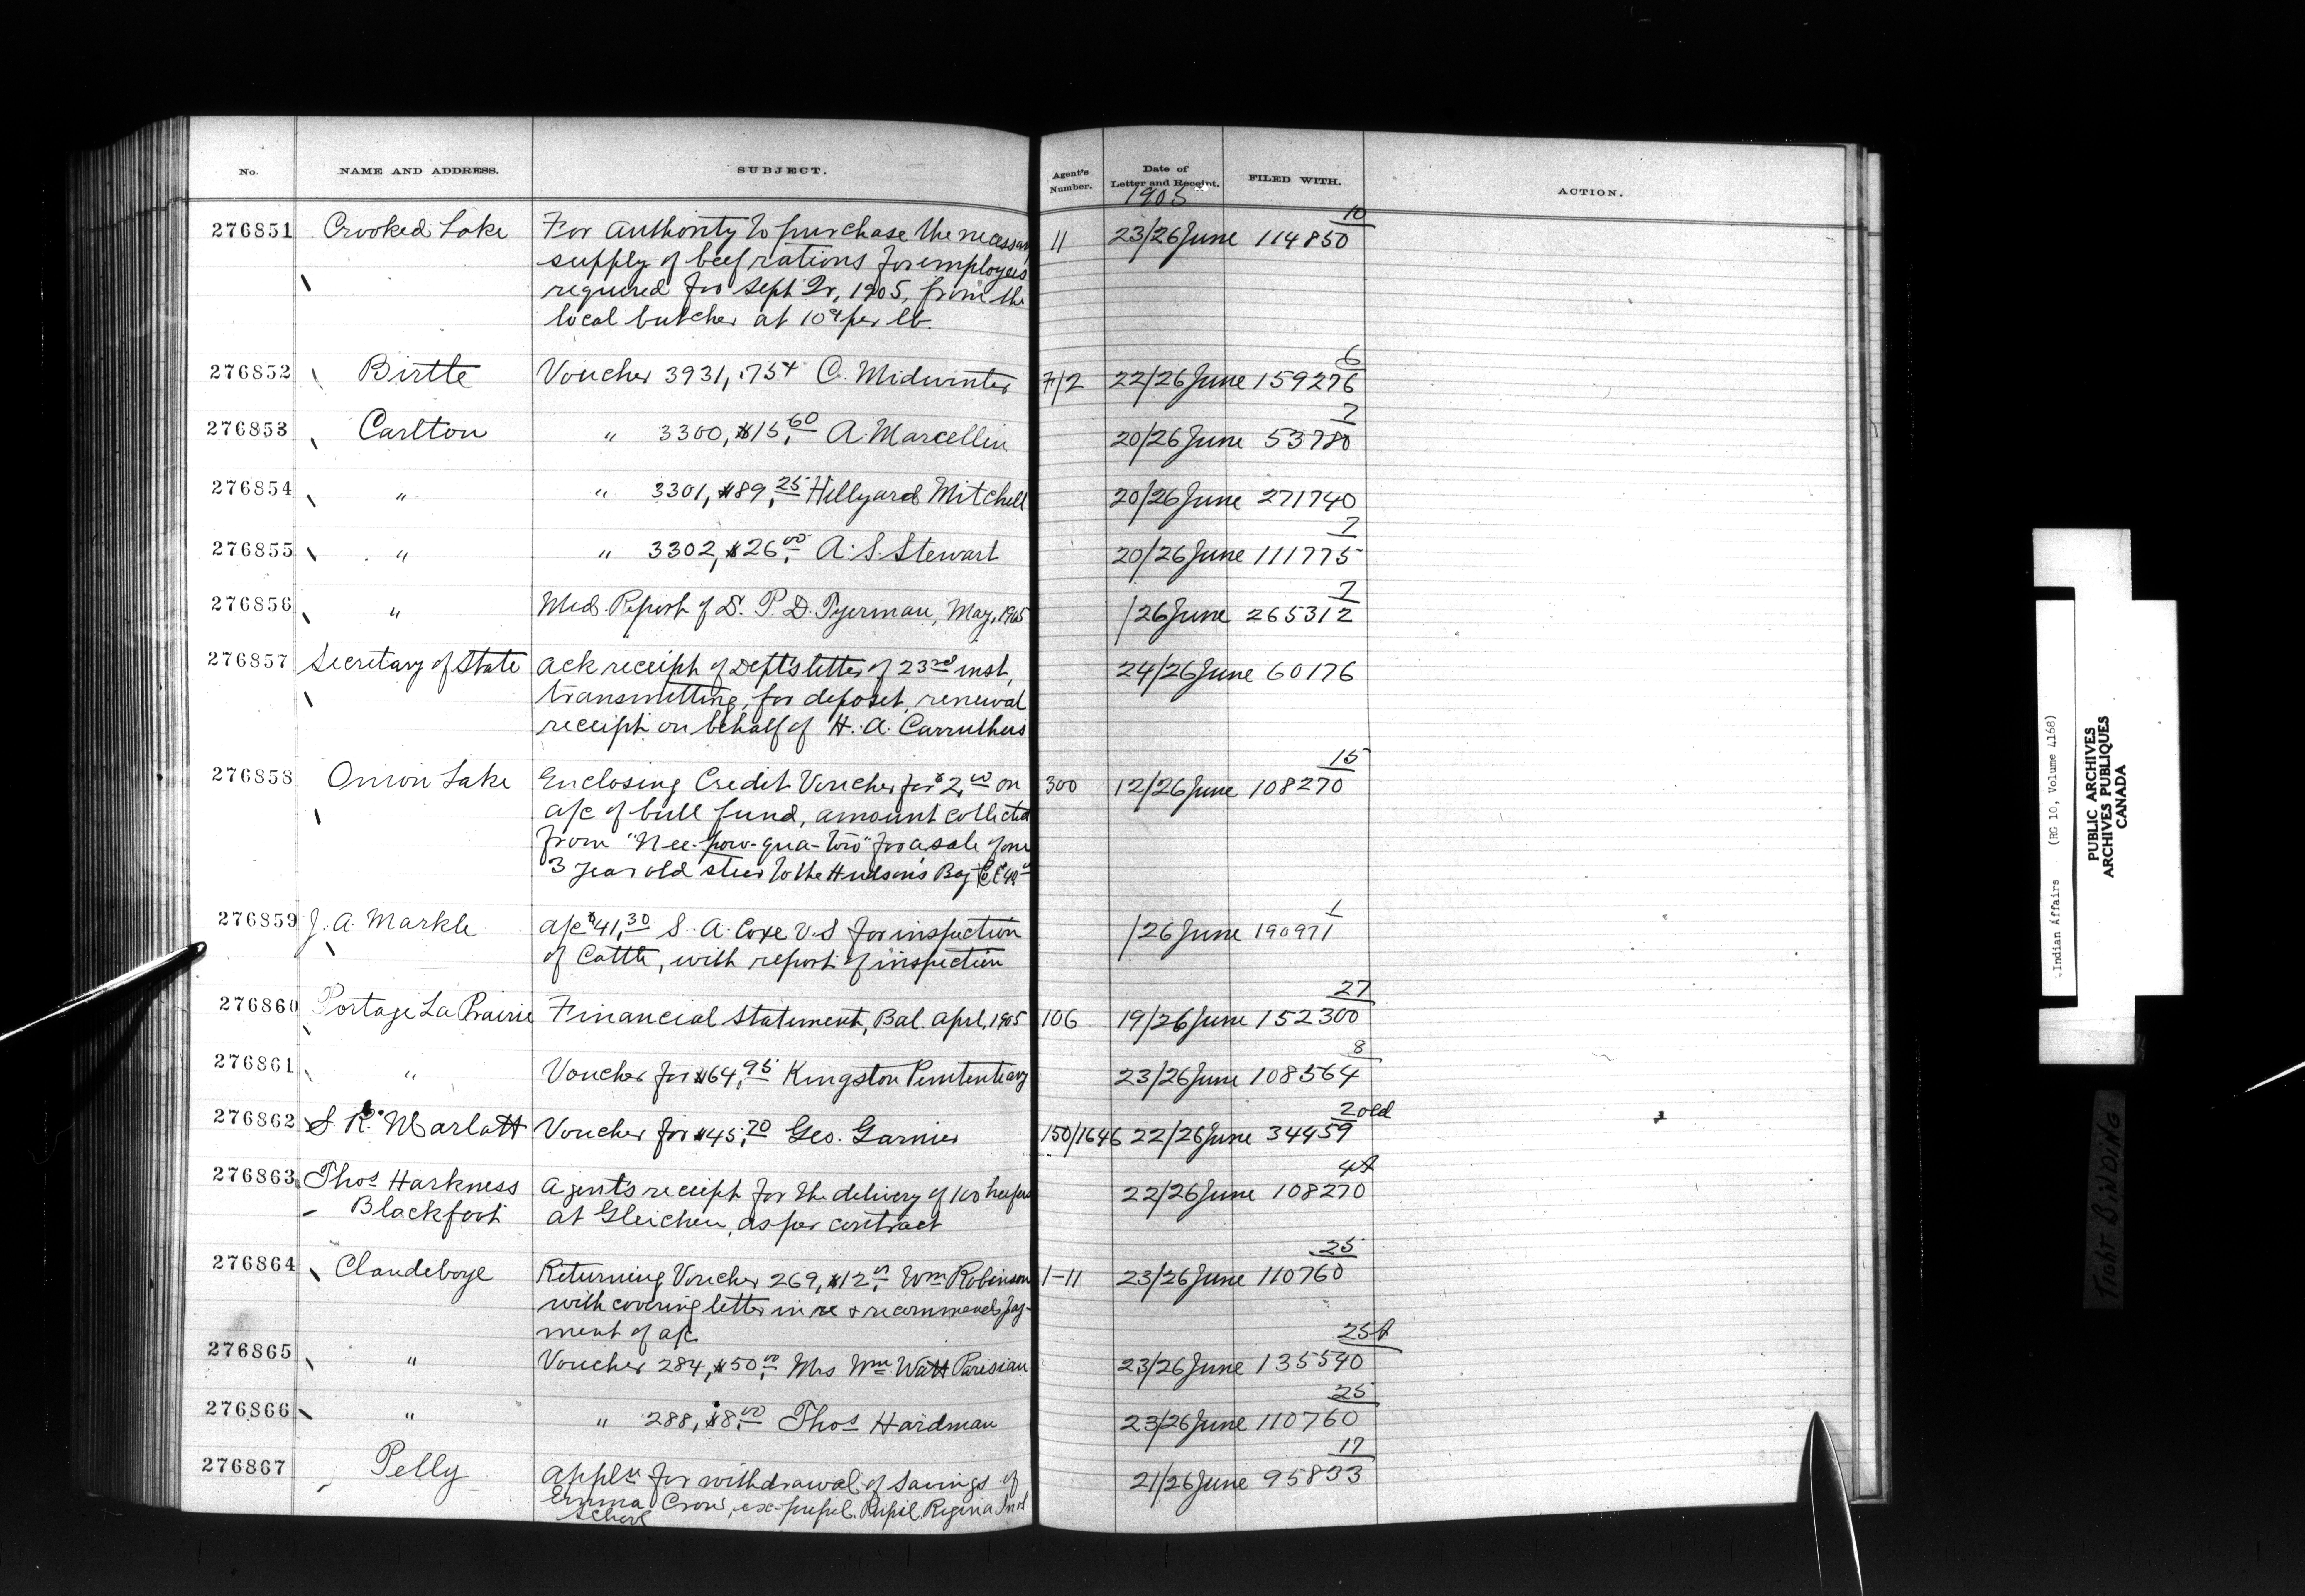 No. NAME AND ADDRESS. SUBJECT. Agent's Number. Date of Letter and Receipt. FILED WITH. ACTION.
1905
10
276851 Crooked Lake For authority to purchase the necessary 11 23/26 June 114850
supply of beef rations for employees
required for Sept Qr, 1905, from the
local butcher at 10¢ per lb.
6
276852 Birtle Voucher 3931, .75¢ C. Midwinter 7/2 22/26 June 159276
7
276853 Carlton " 3300, $15.60 A. Marcellin 20/26 June 53780
276854 " " 3301, $89.25 Hillyard Mitchell 20/26 June 271740
7
276855 " " 3302, $26.00 A. S. Stewart 20/26 June 111775
7
276856 " Med. Report of D. P. D. Tyerman, May, 1905 /26 June 265312
276857 Secretary of State Ack receipt of Dept's letter of 23rd inst, 24/26 June 60176
transmitting, for deposit, renewal
receipt on behalf of H. A. Carruthers
15
276858 Onion Lake Enclosing Credit Voucher for $2.00 on 300 12/26 June 108270
a/c of bull fund, amount collected
from "Nee-pow-qua-too" for a sale of one
3 year old steer to the Hudson's Bay
1
276859 J. A. Markle a/c $41.30 S. A. Coxe V.S for inspection /26 June 190971
of Cattle, with report of inspection
27
276860 Portage La Prairie Financial Statement, Bal. April, 1905 106 19/26 June 152300
8
276861 " Voucher for $64.95 Kingston Penitentiary 23/26 June 108564
2 old
276862 S. R. Marlatt Voucher for $45.70 Geo. Garnier 150/1646 22/26 June 34459
4
276863 Thos Harkness Agent's receipt for the delivery of 100 heifers 22/26 June 108270
Blackfoot at Gleichen, as per contract
25
276864 Clandeboye Returning Voucher 269, $12.00 Wm Robinson 1-11 23/26 June 110760
with covering letter in re & recommends pay-
ment of a/c
25
276865 " Voucher 284, $50.00 Mrs Wm Watt Parisian 23/26 June 135540
25
276866 " " 288, $8.00 Thos Hardman 23/26 June 110760
17
276867 Pelly Appln for withdrawal of Savings of 21/26 June 95833
Emma Crow, ex-pupil. Pupil. Regina Ind
School
Indian Affairs (RG 10, Volume 4168)
PUBLIC ARCHIVES
ARCHIVES PUBLIQUES
CANADA
TIGHT BINDING